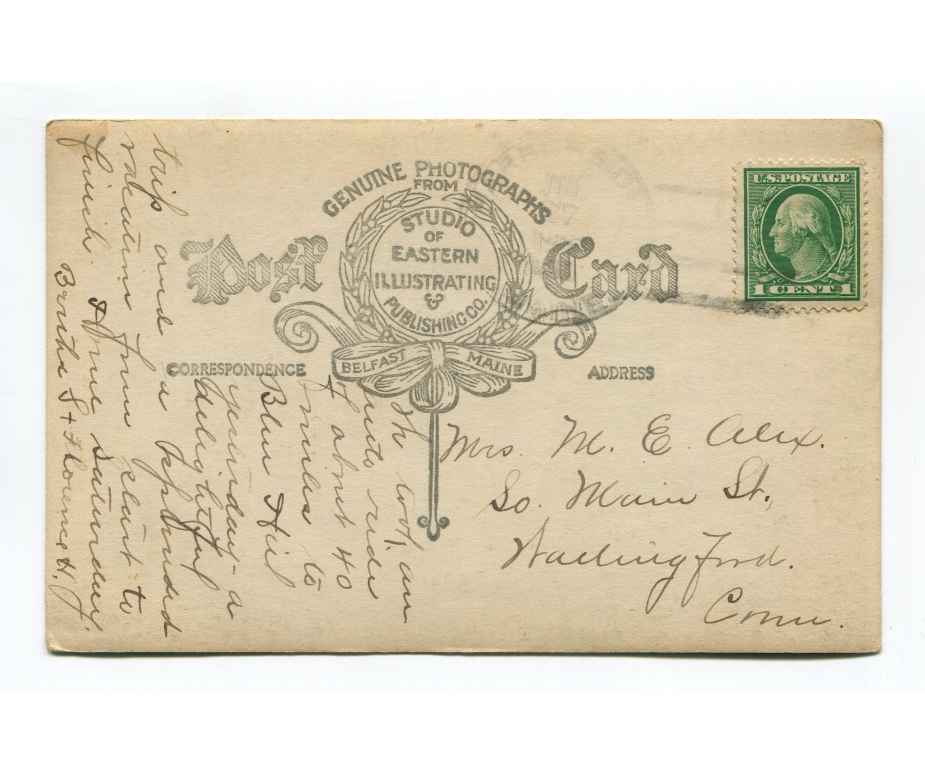 GENUINE PHOTOGRAPHS
FROM
STUDIO
OF
EASTERN
ILLUSTRATING
&
PUBLISHING CO.
BELFAST MAINE
Post Card
U.S. POSTAGE
1 CENT 1
CORRESPONDENCE
ADDRESS
We took an
auto ride
of about 40
miles to
Blue Hill
yesterday - a
delightful
trip and a splendid
vacation from start to
finish. Home Saturday.
Bertha S + Florence H. J.
Mrs. M. E. Alex.
So. Main St.,
Wallingford.
Conn.